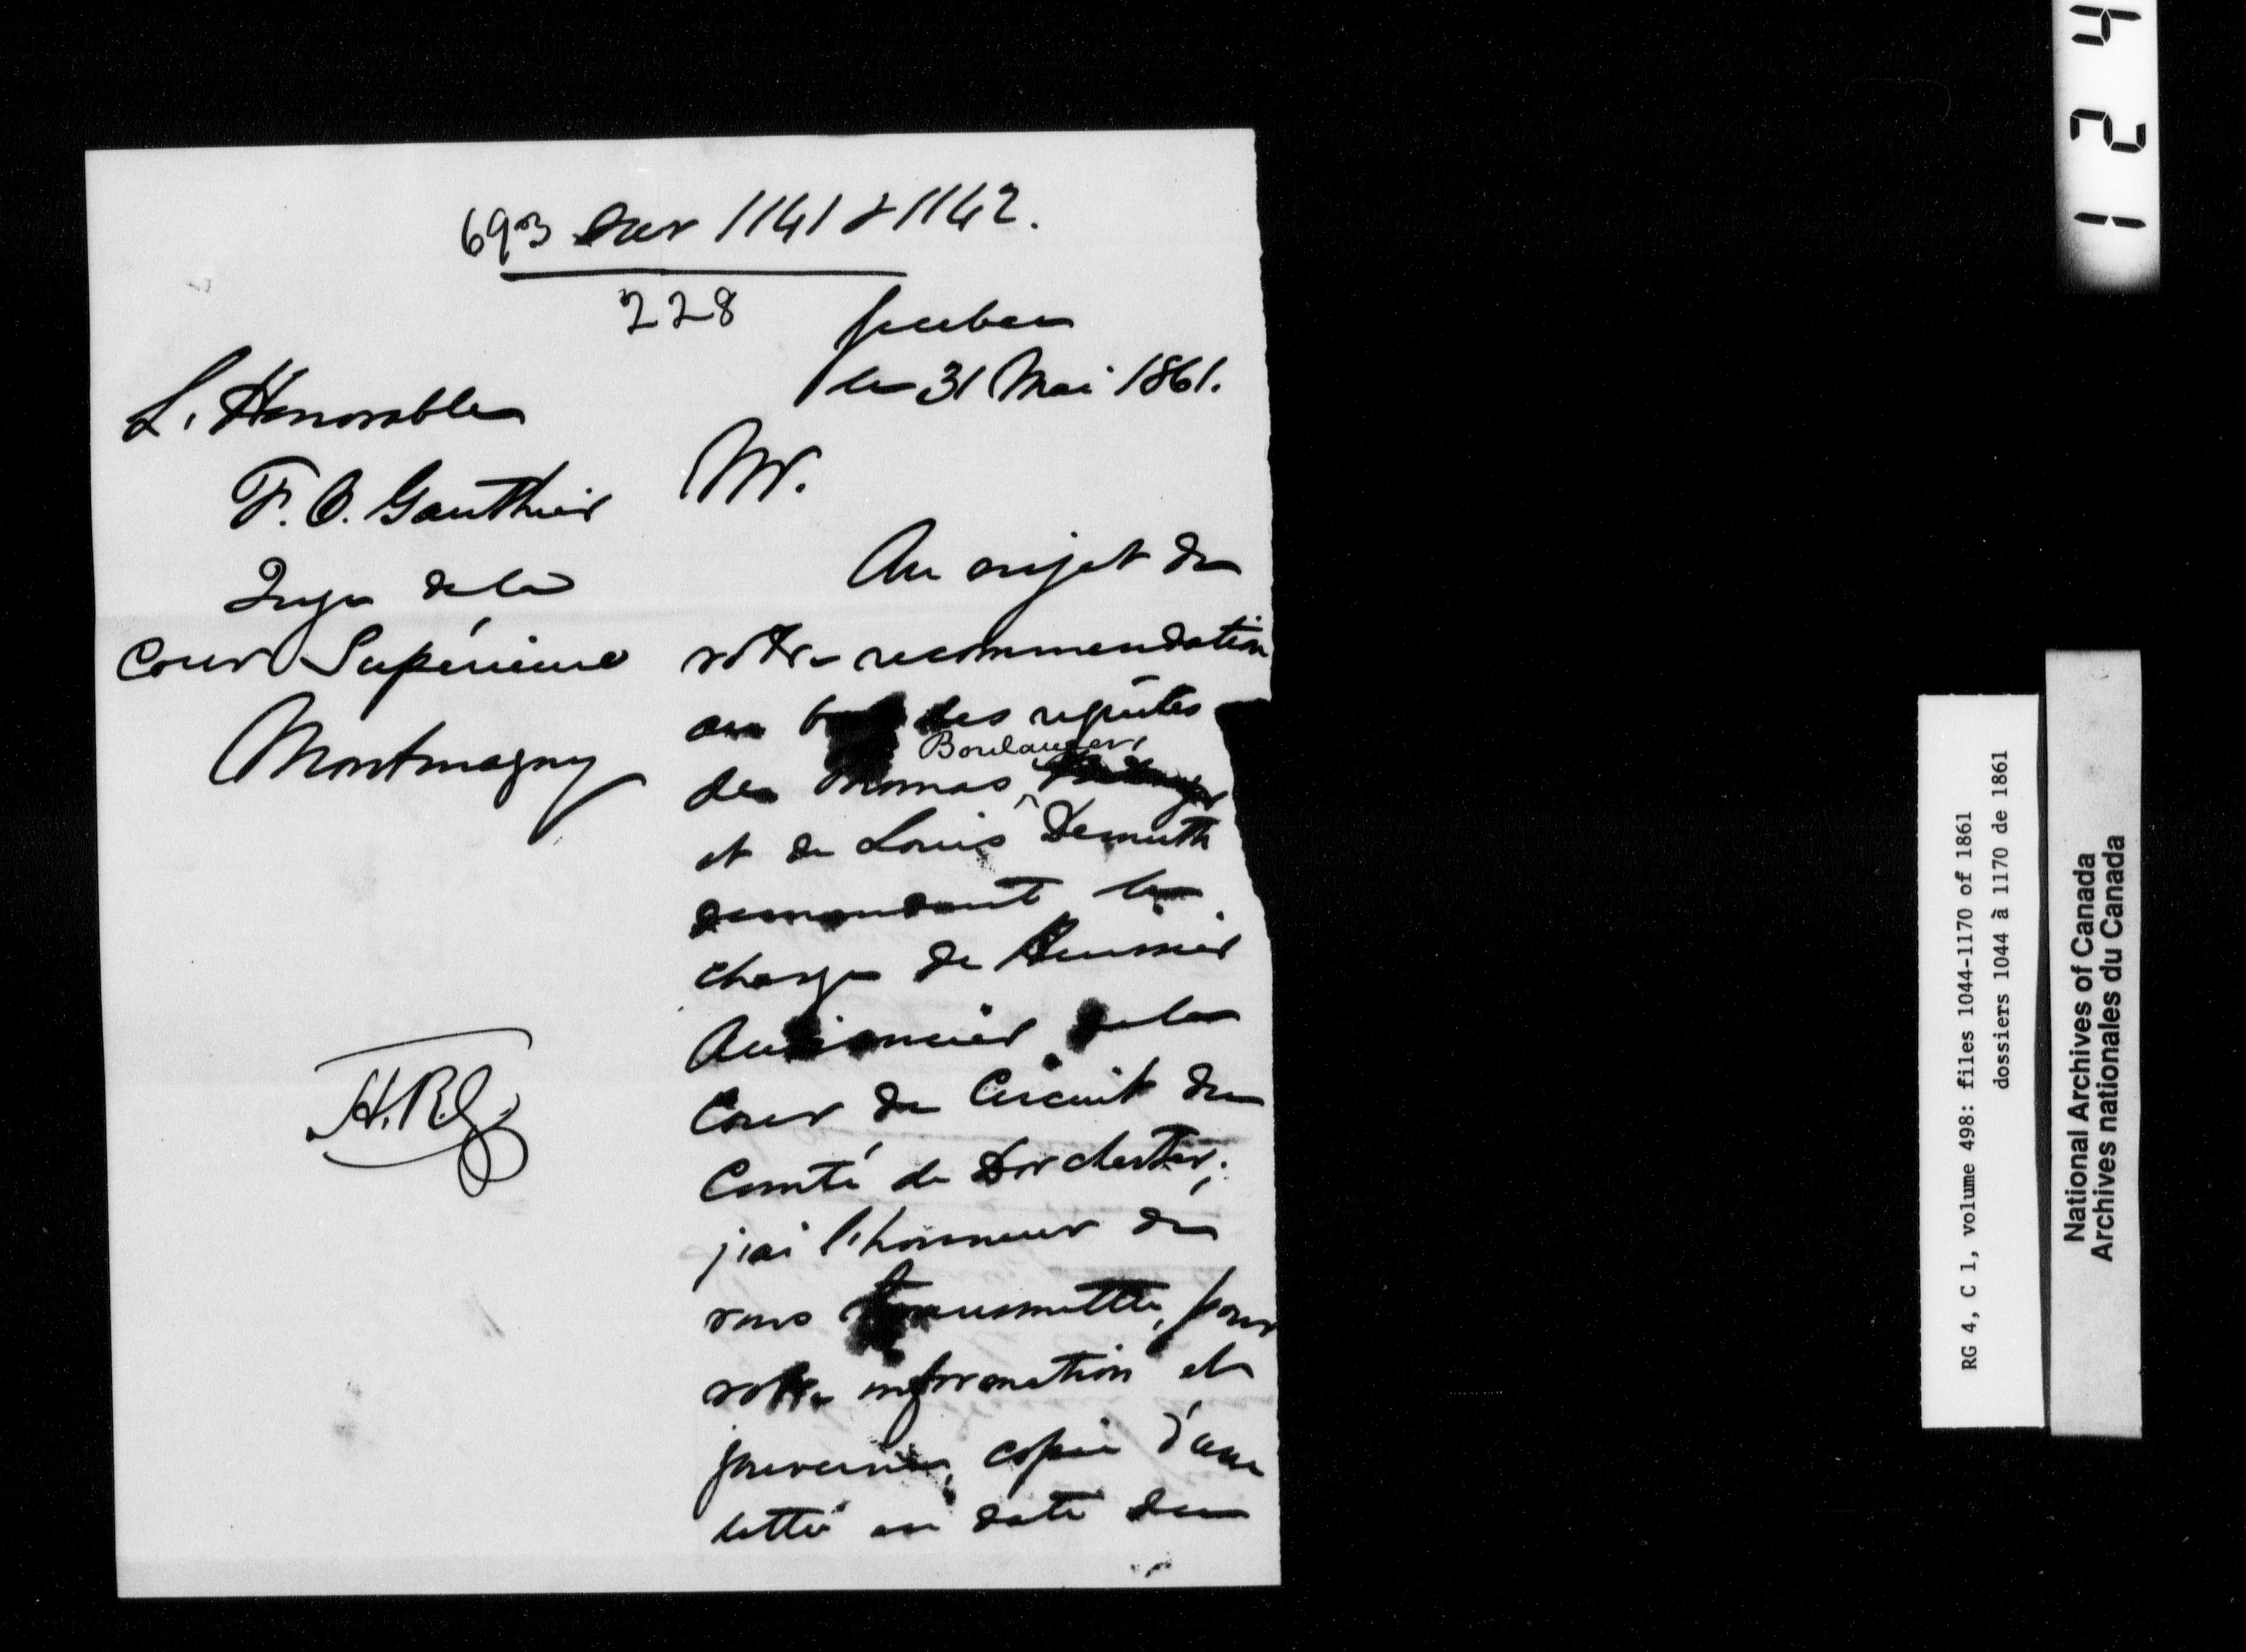 693 sur 1141 & 1142.
228
Quebec
le 31 Mai 1861.
L'Honorable
F. O. Gauthier
Juge de la
Cour Supérieure
Montmagny
H.R.G.
Mr.
Au sujet de
votre recommendation
au bas des requêtes
de Thomas Boulanger,
et de Louis Demuth
demandant la
charge de Huissier
Audiencier de la
Cour de Circuit du
Comté de Dorchester,
j'ai l'honneur de
vous transmettre, pour
votre information et
gouverne, copie d'une
lettre en date du
1 2 4
RG 4, C 1, volume 498: files 1044-1170 of 1861
dossiers 1044 à 1170 de 1861
National Archives of Canada
Archives nationales du Canada